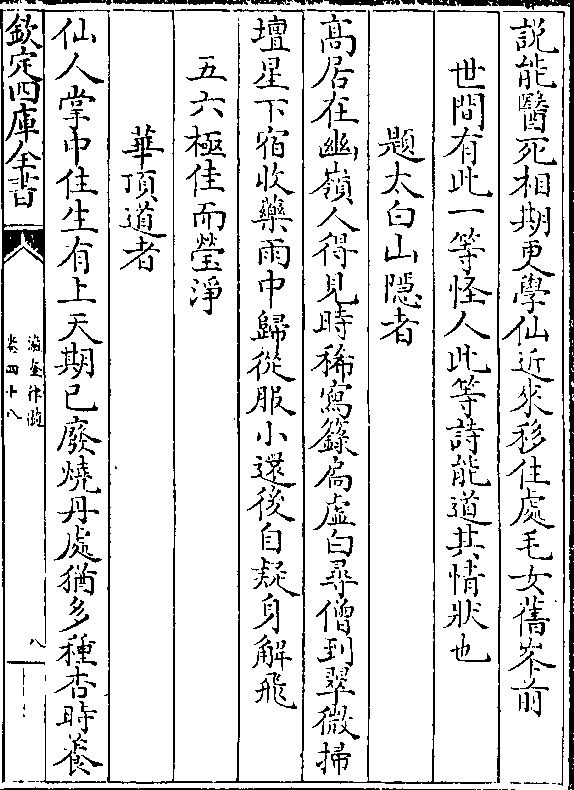 説能醫死相期更學仙近來移住處毛女舊峯前
世間有此一等怪人此等詩能道其情狀也
題太白山隱者
髙居在幽嶺人得見時稀寫籙扃虚白尋僧到翠微掃
壇星下宿收藥雨中歸從服小還後自疑身解飛
五六極佳而瑩淨
華頂道者
仙人掌中住生有上天期已廢燒丹處猶多種杏時養
欽定四庫全書
瀛奎律髓
卷四十八
八